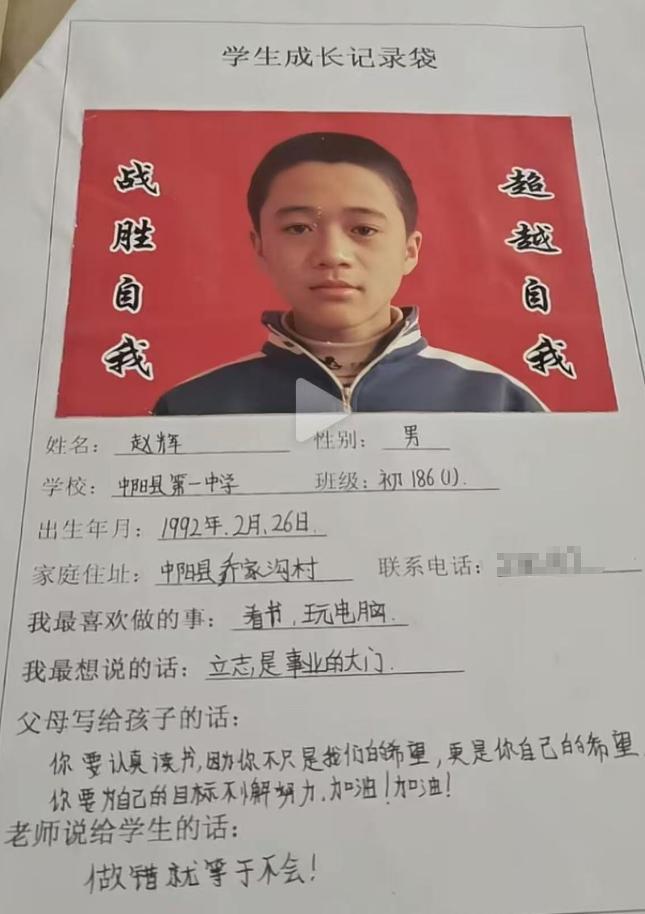 学生成长记录袋
战胜自我
超越自我
姓名：赵辉 性别：男
学校：中阳县第一中学 班级：初186(1).
出生年月：1992年.2月.26日.
家庭住址：中阳县乔家沟村 联系电话：
我最喜欢做的事：看书，玩电脑.
我最想说的话：立志是事业的大门.
父母写给孩子的话：
你要认真读书，因为你不只是我们的希望，更是你自己的希望
你要为自己的目标不懈努力.加油！加油！
老师说给学生的话：
做错就等于不会！